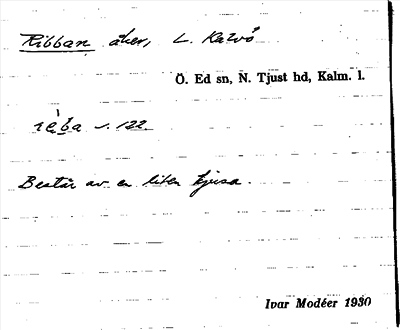 Ribban åker, L. Kalvö
Ö. Ed sn, N. Tjust hd, Kalm. l.
s. 122.
Består av en liten kjusa.
Ivar Modéer 1930